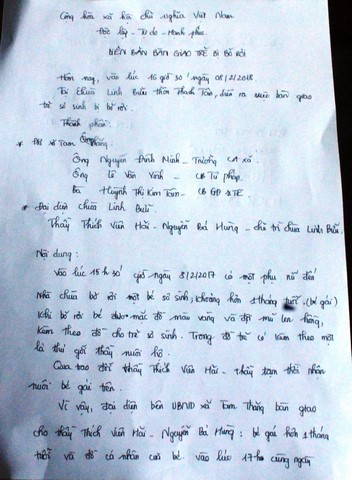 Cộng hòa xã hội chủ nghĩa Việt Nam
Độc lập - Tự do - Hạnh phúc
BIÊN BẢN BÀN GIAO TRẺ BỊ BỎ RƠI
Hôm nay, vào lúc 16 giờ 30' ngày 08/2/2018.
Tại chùa Linh Bửu thôn Thanh Tân, diễn ra bàn giao
trẻ sơ sinh bị bỏ rơi.
Thành phần:
* xã Tam Thăng.
Ông Nguyễn Đình Minh - Trưởng CA xã.
Ông Lê Văn Vinh - CB Tư pháp.
Bà Huỳnh Thị Kim Tâm - CB GĐ &TE.
* Đại diện chùa Linh Bửu.
Thầy Thích Viên Hải - Nguyễn Bá Hùng - chủ trì chùa Linh Bửu.
Nội dung:
Vào lúc 15h30' giờ ngày 8/2/2017 có một phụ nữ đến
Nhà chùa bỏ rơi một bé sơ sinh, khoảng hơn 1 tháng tuổi, (bé gái)
Khi bỏ rơi bé được mặc đồ màu vàng và đội mũ len hồng,
kèm theo đồ cho trẻ sơ sinh. Trong đồ trẻ có kèm theo một
lá thư gởi thầy nuôi hộ.
Qua trao đổi thầy Thích Viên Hải - thầy tạm thời nhận
nuôi bé gái trên.
Vì vậy, đại diện bên UBND xã Tam Thăng bàn giao
cho thầy Thích Viên Hải - Nguyễn Bá Hùng: bé gái hơn 1 tháng
tuổi và đồ cá nhân của bé. vào lúc 17h cùng ngày